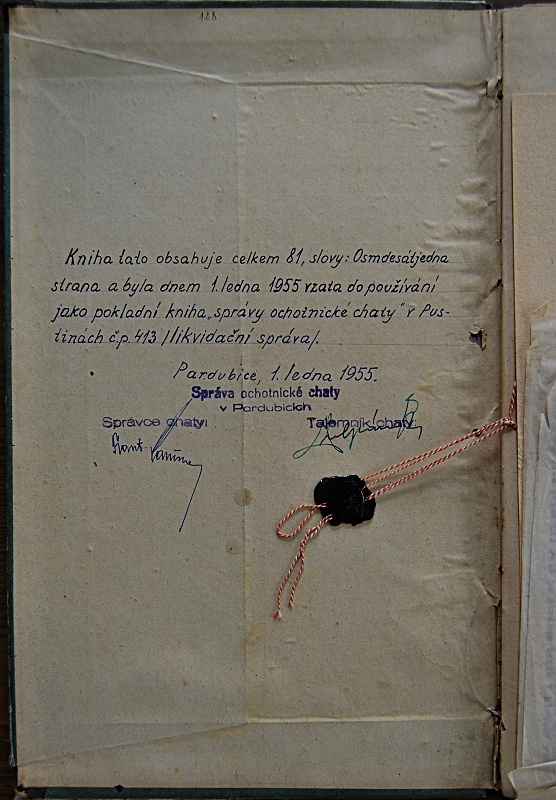 128
Kniha tato obsahuje celkem 81, slovy: Osmdesátjedna
strana a byla dnem 1. ledna 1955 vzata do používání
jako pokladní kniha „správy ochotnické chaty" v Pus-
tinách č.p. 413 /likvidační správa/.
Pardubice, 1. ledna 1955.
Správa ochotnické chaty
v Pardubicích
Správce chaty: Tajemník chaty: